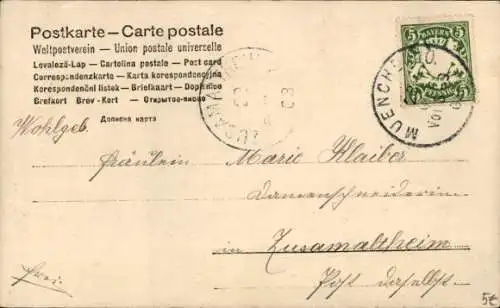 Postkarte – Carte postale
Weltpostverein – Union postale universelle
Levelező-Lap – Cartolina postale – Post card
Correspondenzkarte – Karta korespondencyjna
Korespondenční lístek – Briefkaart – Dopisnice
Brefkort – Brev-Kort – Открытое письмо
Дописна карта
5 BAYERN 5
PFENNIG
MUENCHEN
Wohlgeb.
Fräulein Marie Klaiber
Damenschneiderin
in Zusamaltheim
frei.
Post daselbst.
5€